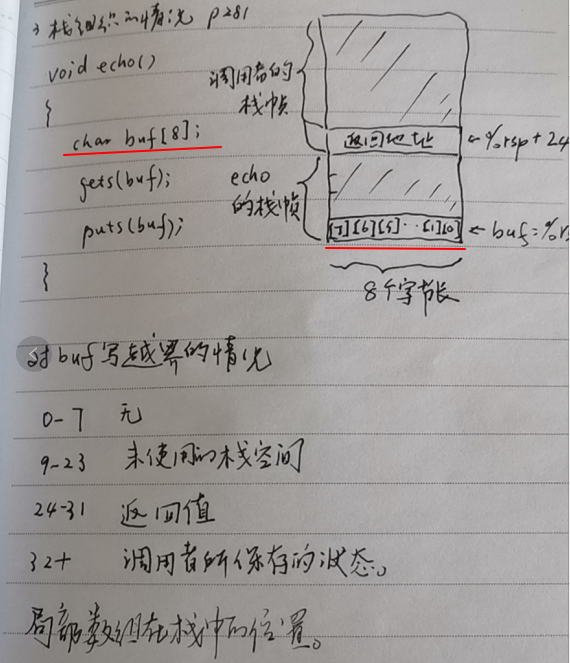 3 栈组织的情况 P281
void echo()
{
char buf[8];
gets(buf);
puts(buf);
}
调用者的
栈帧
返回地址
←%rsp+24
echo
的栈帧
[7][6][5]··[1][0]
←buf=%r
8个字节长
对buf写越界的情况
0-7 无
9-23 未使用的栈空间
24-31 返回值
32+ 调用者所保存的状态。
局部数组在栈中的位置。